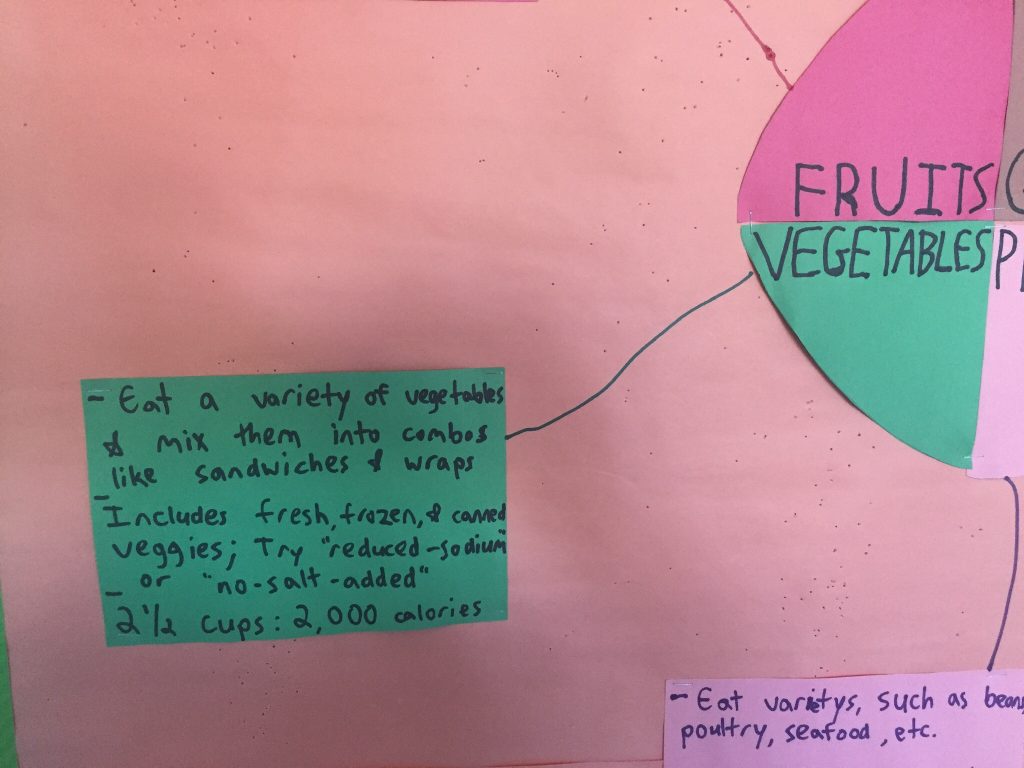 FRUITS
VEGETABLES
- Eat a variety of vegetables
& mix them into combos
like sandwiches & wraps
- Includes fresh, frozen, & canned
veggies; Try "reduced-sodium"
or "no-salt-added"
- 2 1/2 cups: 2,000 calories
- Eat varietys, such as beans,
poultry, seafood, etc.